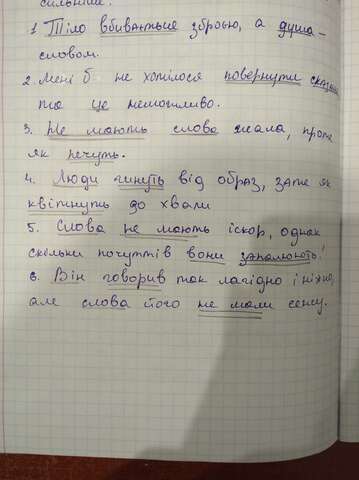 сильніше.
1. Тіло вбивається зброєю, а душа –
словом.
2. Мені б не хотілося повернути сказане,
та це неможливо.
3. Не мають слова жала, проте
як печуть.
4. Люди гинуть від образ, зате як
квітнуть до хвали
5. Слова не мають іскор, однак
скільки почуттів вони запалюють!
6. Він говорив так лагідно і ніжно,
але слова його не мали сенсу.